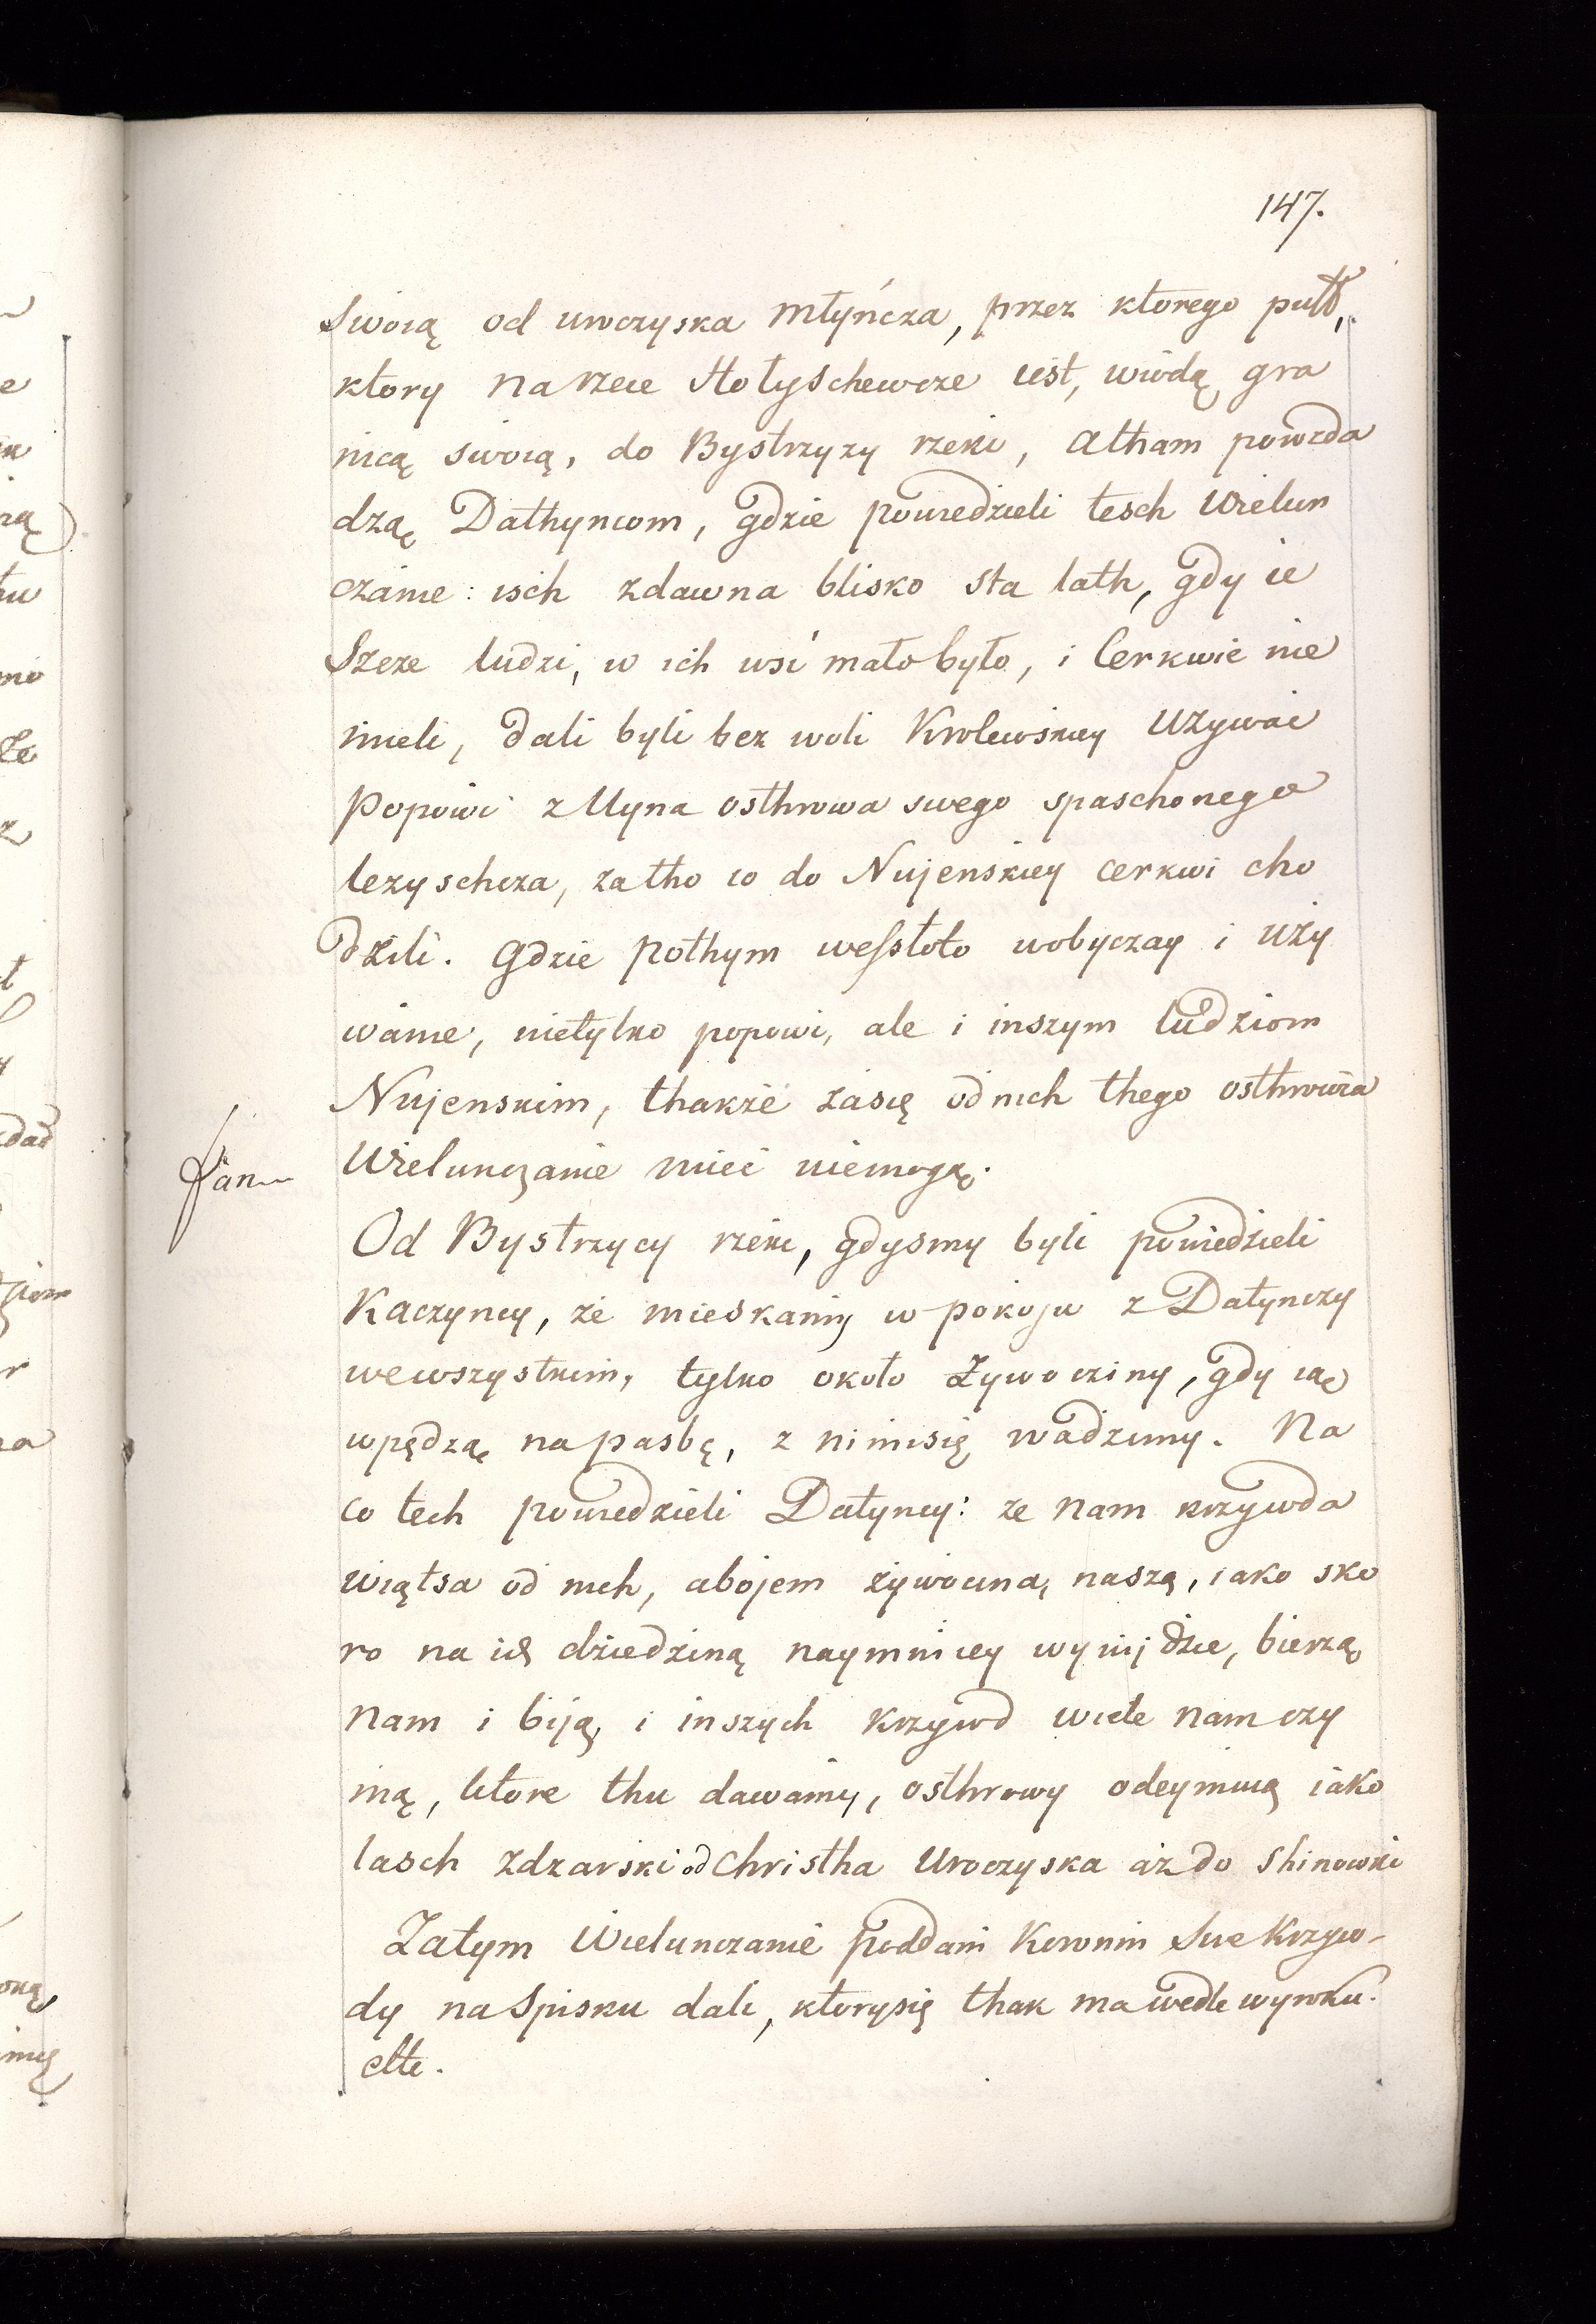 147.
swoią od uroczyska Młyńcza, przez ktorego pułł,
ktory na rzece Hołyschewcze iest, wiodą gra
nicą swoią, do Bystrzyzy rzeki, atham powzda
dzą Dathyncom, gdzie powiedzieli tesch Wielun
czanie: isch zdawna blisko sta lath, gdy ie
szcze ludzi, w ich wsi małobyło, i Cerkwie nie
mieli, dali byli bez woli Krolewskiey używac
Popowi z Uyna osthrowa swego spaschonego
lezyschcza, zatho co do Nujenskiey cerkwi cho
dzili. Gdzie pothym wesstoło wobyczay i uży
wanie, nietylko popowi, ale i inszym ludziom
Nujenskim, thakże zasię od nich thego osthrowa
Wielunczanie mieć niemogą.
Od Bystrzycy rzeki, gdysmy byli powiedzieli
Kaczyncy, że mieskamy w pokoju z Datynczy
wewszystkim, tylko około Żywocziny, gdy ią
wpędzą na pasbę, z nimisię wadzimy. Na
co tech powiedzieli Datyncy: że nam krzywda
wiątsa od nich, abojem żywocina, naszą, iako sko
ro na ich dziedziną naymniey wynijdzie, bierzą
nam i biją, i inszych krzywd wiele nam czy
nią, ktore thu dawamy, osthrowy odeymuią iako
lasch zdzarski od Christha Uroczyska aż do Shinowki
Zatym Wielunczanie poddani Koronni Swe Krzyw-
dy na Spisku dali, ktorysię thak ma wedle wyroku.
ette.